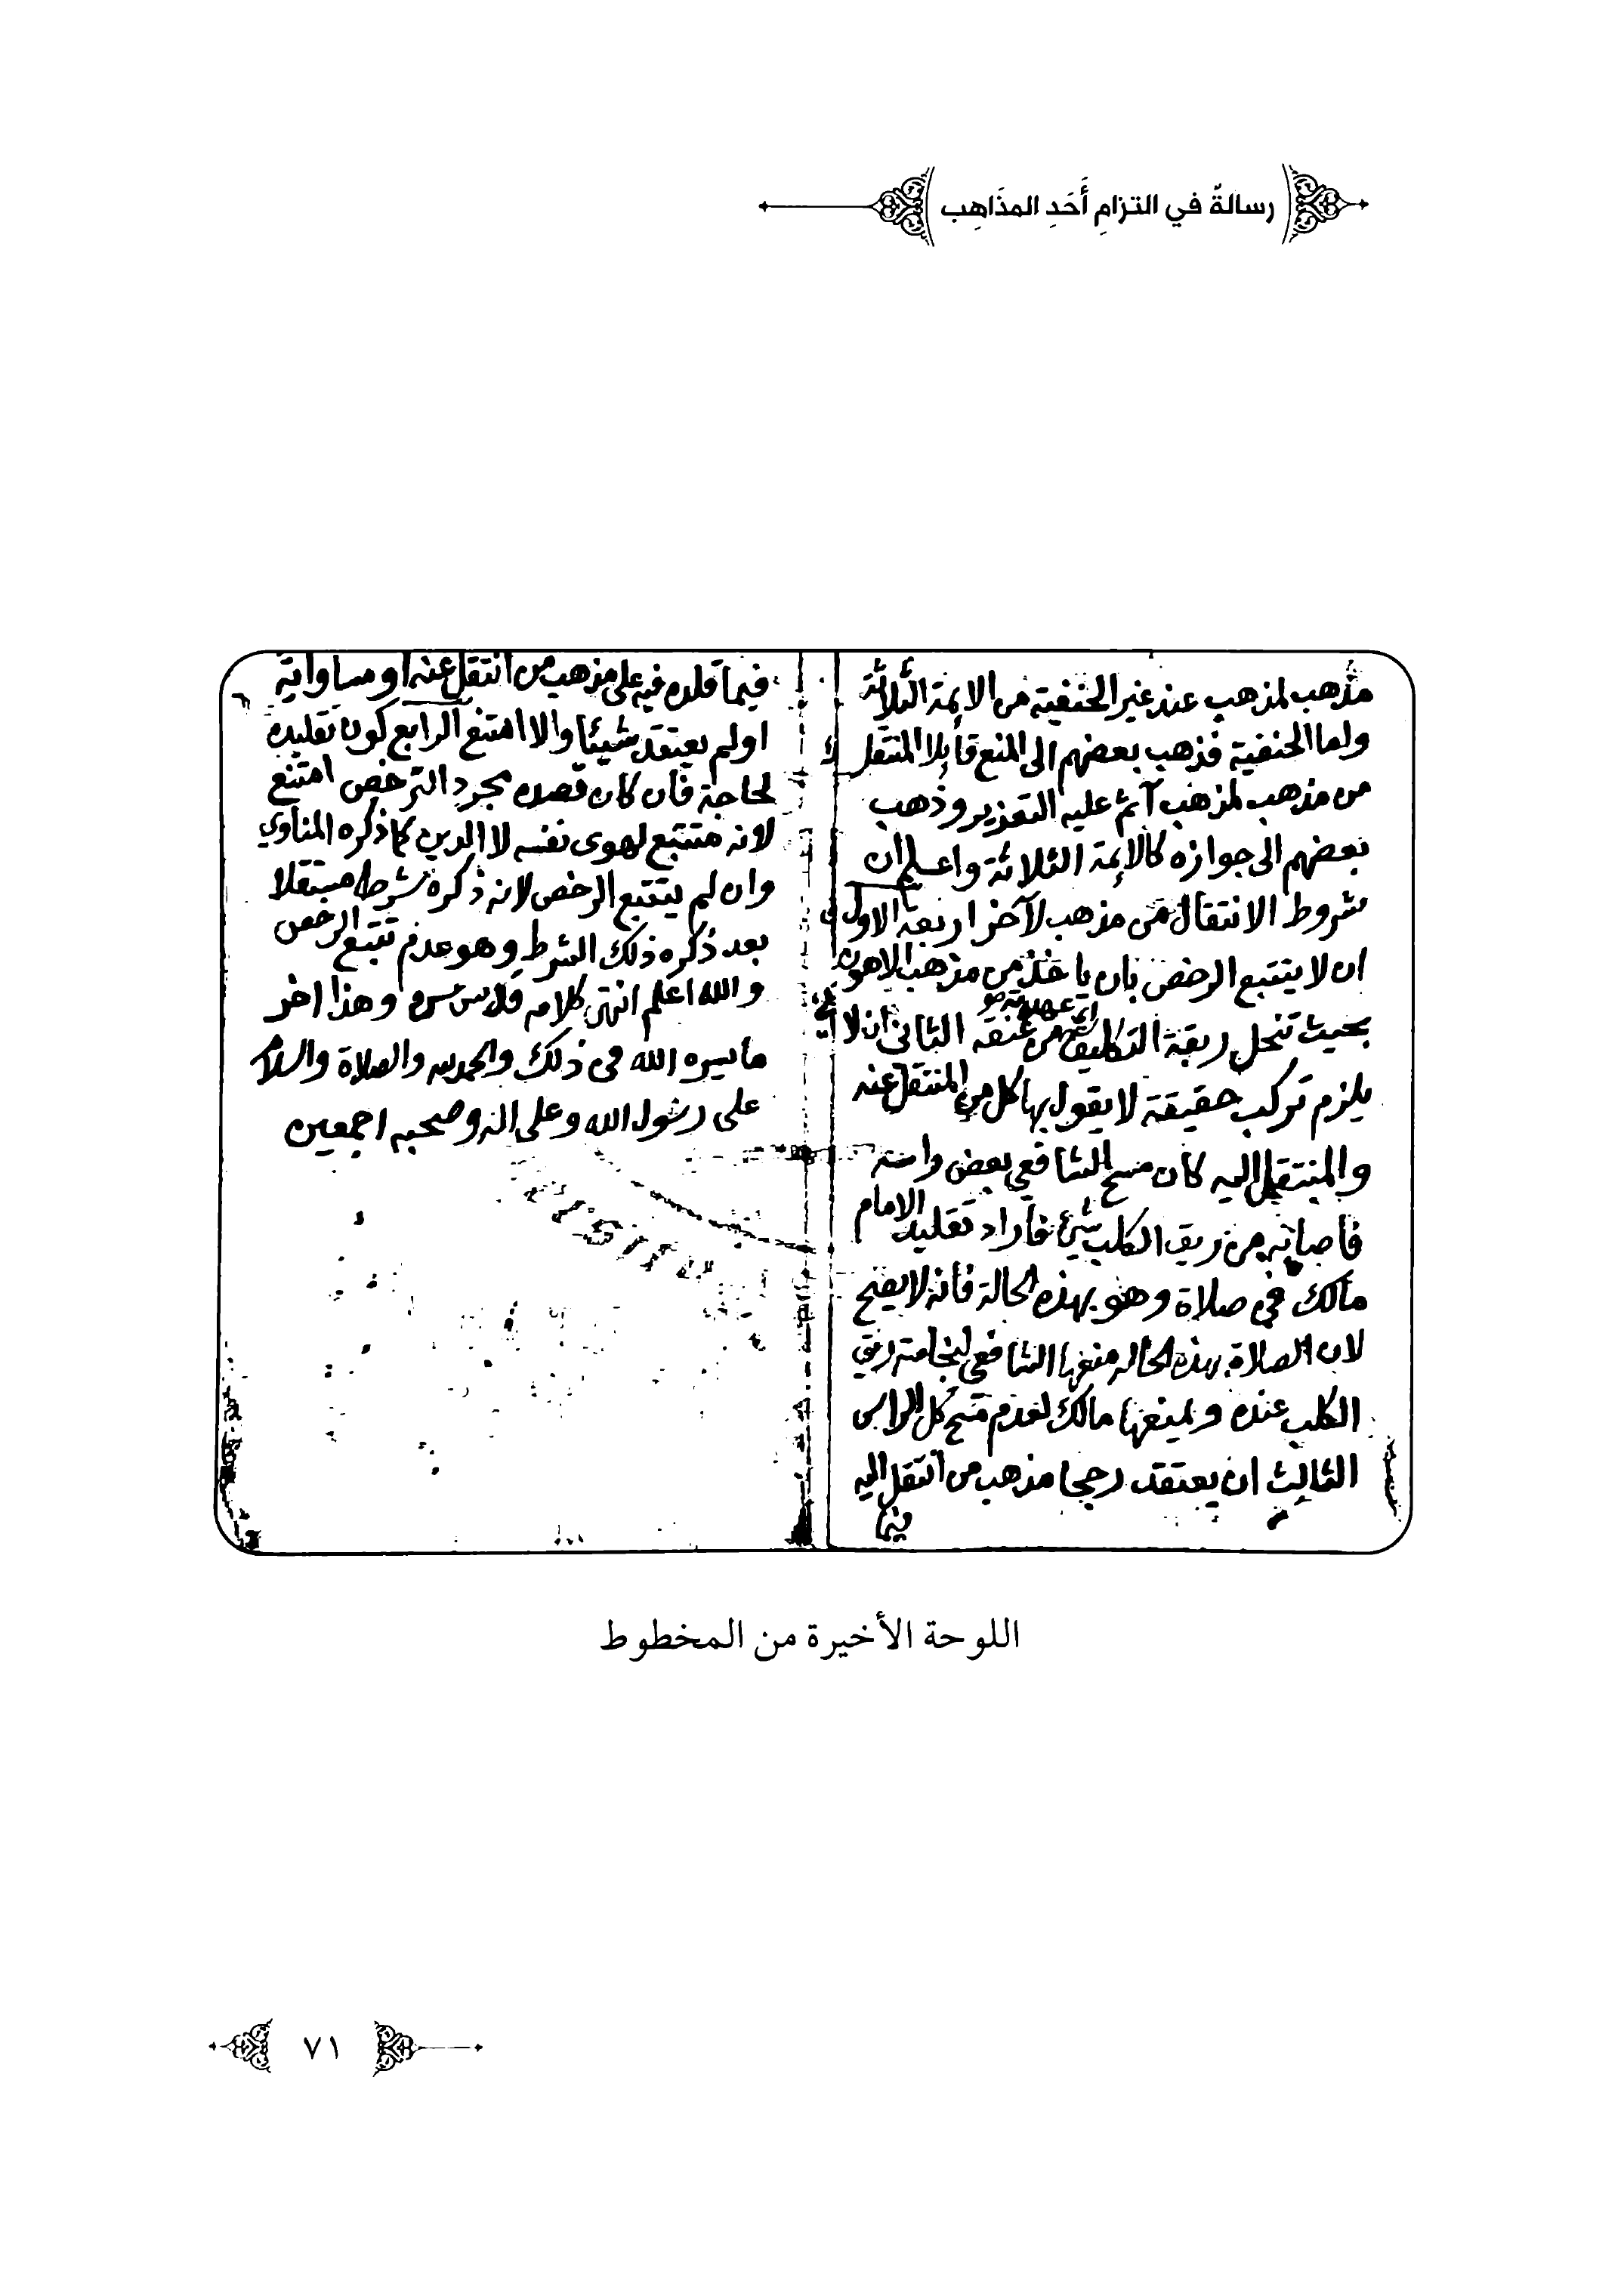 رسالةٌ في التزامِ أَحَدِ المذَاهِب
مذهب لمذهب عند غير الحنفية من الايمة الثلاثة
واما الحنفية فذهب بعضهم الى المنع قايلا المنتقل
من مذهب لمذهب آثم عليه التعزير وذهب
بعضهم الى جوازه كالايمة الثلاثة واعلم ان
شروط الانتقال من مذهب لآخر اربعة الاول
ان لا يتتبع الرخص بان ياخذ من مذهب الاهون
بحيث تنحل ربقة التكليف من عنقه الثاني ان لا
يلزم تركب حقيقة لا يقول بها كل من المنتقل عنه
والمنتقل اليه كان مسح الشافعي بعض راسه
فاصابه من ريق الكلب شيئ فاراد تقليد الامام
مالك في صلاة وهو بهذه الحالة فانه لا يصح
لان الصلاة بهذه الحاله منعها الشافعي لنجاسة ريق
الكلب عنده ويمنعها مالك لعدم مسح كل الراس
الثالث ان يعتقد رجحا مذهب من انتقل اليه
فيما
فيما قلده فيه على مذهب من انتقل عنه او مساواته
او لم يعتقد شيئا والا امتنع الرابع كون تقليده
لحاجة فان كان قصده مجرد الترخص امتنع
لانه متتبع لهوى نفسه لا الدين كما ذكره المناوي
وان لم يتتبع الرخص لانه ذكره شرط مستقلا
بعد ذكره ذلك الشرط وهو عدم تتبع الرخص
والله اعلم انتهى كلامه قدس سره وهذا اخر
ما يسره الله في ذلك والحمد لله والصلاة والسلام
على رسول الله وعلى اله وصحبه اجمعين
اللوحة الأخيرة من المخطوط
٧١